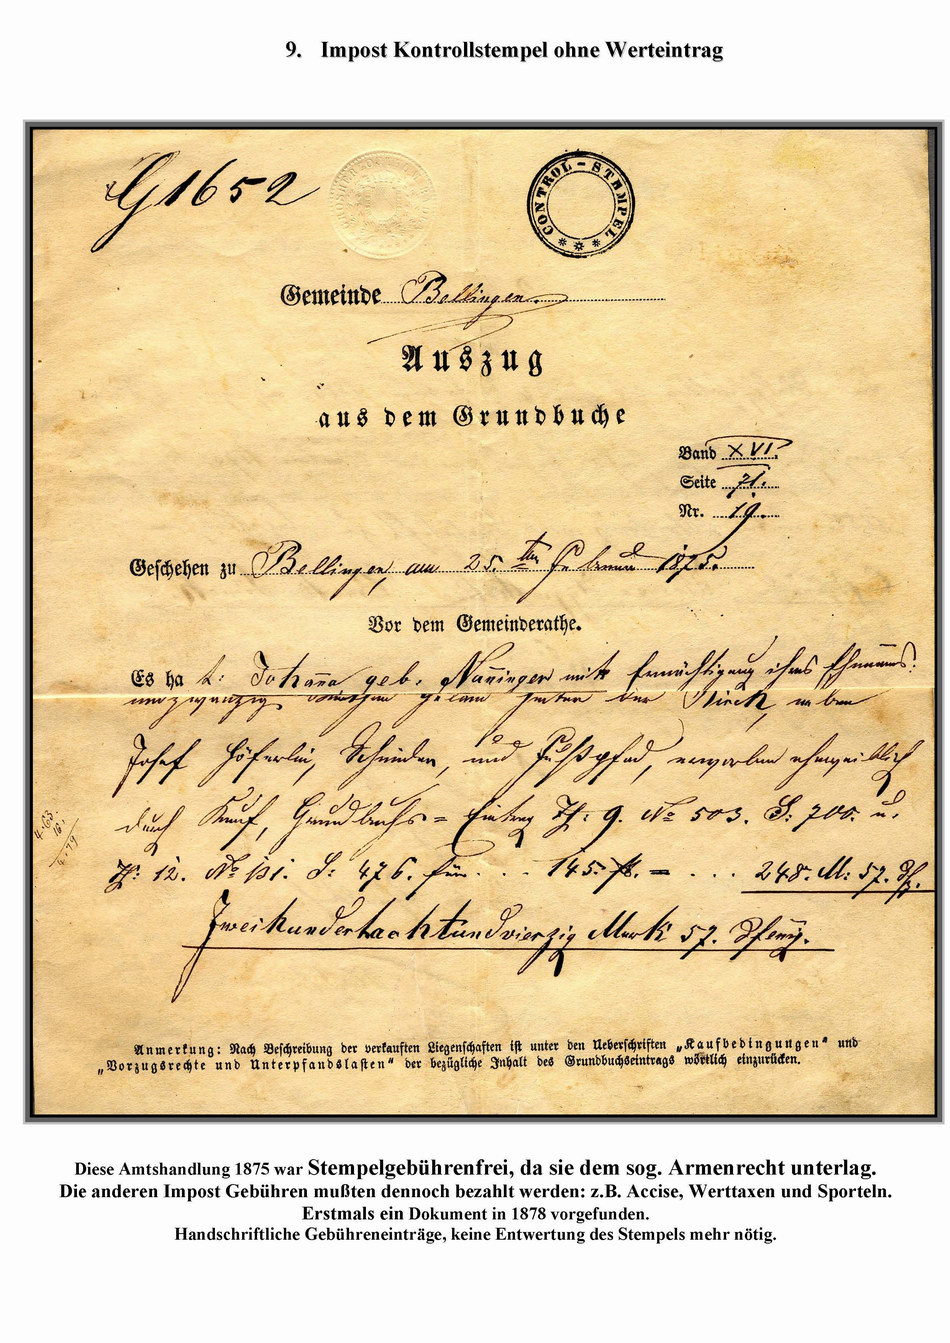 9. Impost Kontrollstempel ohne Werteintrag
G1652
CONTROL-STEMPEL
Gemeinde Bellingen.
Auszug
aus dem Grundbuche
Band XVI.
Seite 71.
Nr. 19.
Geschehen zu Bellingen, am 25. ten Februar 1875.
Vor dem Gemeinderathe.
Es hat: Johanna geb. Nanninger mit Ermächtigung ihres Ehemanns:
neben
Josef Höferlin, Schneider, und Fußpfad, erworben eheweiblich
durch Kauf, Grundbuchs = Eintrag Th: 9. No 503. S: 700. u.
Th: 12. No 181. S: 476. für... 145. fl. = ... 248. M: 57. Pf.
Zweihundertachtundvierzig Mark 57. Pfennig.
Anmerkung: Nach Beschreibung der verkauften Liegenschaften ist unter den Ueberschriften „Kaufbedingungen" und
„Vorzugsrechte und Unterpfandslasten" der bezügliche Inhalt des Grundbuchseintrags wörtlich einzurücken.
Diese Amtshandlung 1875 war Stempelgebührenfrei, da sie dem sog. Armenrecht unterlag.
Die anderen Impost Gebühren mußten dennoch bezahlt werden: z.B. Accise, Werttaxen und Sporteln.
Erstmals ein Dokument in 1878 vorgefunden.
Handschriftliche Gebühreneinträge, keine Entwertung des Stempels mehr nötig.